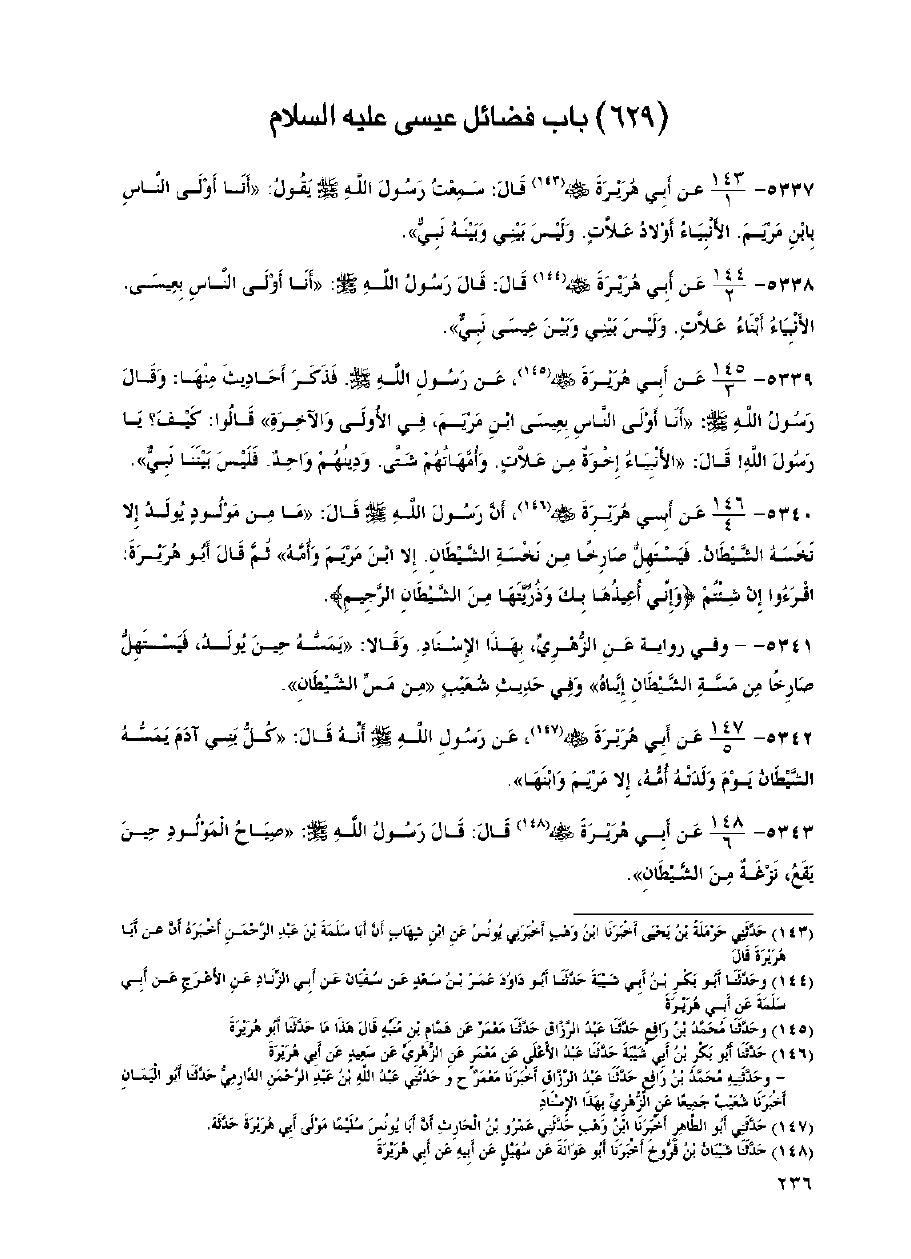 (٦٢٩) باب فضائل عيسى عليه السلام
٥٣٣٧- ١٤٣/١ عن أبي هُرَيْرَةَ ﵁(١٤٣) قَالَ: سَمِعْتُ رَسُولَ اللَّهِ ﷺ يَقُولُ: «أَنَا أَوْلَى النَّاسِ
بِابْنِ مَرْيَمَ. الأَنْبِيَاءُ أَوْلادُ عَلاَّتٍ. وَلَيْسَ بَيْنِي وَبَيْنَهُ نَبِيٌّ».
٥٣٣٨- ١٤٤/٢ عَن أَبِي هُرَيْرَةَ ﵁(١٤٤) قَالَ: قَالَ رَسُولُ اللَّهِ ﷺ: «أَنَا أَوْلَى النَّاسِ بِعِيسَى.
الأَنْبِيَاءُ أَبْنَاءُ عَلاَّتٍ. وَلَيْسَ بَيْنِي وَبَيْنَ عِيسَى نَبِيٌّ».
٥٣٣٩- ١٤٥/٣ عَن أَبِي هُرَيْرَةَ ﵁(١٤٥)، عَن رَسُولِ اللَّهِ ﷺ. فَذَكَرَ أَحَادِيثَ مِنْهَا: وَقَالَ
رَسُولُ اللَّهِ ﷺ: «أَنَا أَوْلَى النَّاسِ بِعِيسَى ابْنِ مَرْيَمَ، فِي الأُولَى وَالآخِرَةِ» قَالُوا: كَيْفَ؟ يَا
رَسُولَ اللَّهِ! قَالَ: «الأَنْبِيَاءُ إِخْوَةٌ مِن عَلاَّتٍ. وَأُمَّهَاتُهُمْ شَتَّى. وَدِينُهُمْ وَاحِدٌ. فَلَيْسَ بَيْنَنَا نَبِيٌّ».
٥٣٤٠- ١٤٦/٤ عَن أَبِي هُرَيْرَةَ ﵁(١٤٦)، أَنَّ رَسُولَ اللَّهِ ﷺ قَالَ: «مَا مِن مَوْلُودٍ يُولَدُ إِلا
نَخَسَهُ الشَّيْطَانُ. فَيَسْتَهِلُّ صَارِخًا مِن نَخْسَةِ الشَّيْطَانِ. إِلا ابْنَ مَرْيَمَ وَأُمَّهُ» ثُمَّ قَالَ أَبُو هُرَيْرَةَ:
اقْرَءُوا إِنْ شِئْتُمْ ﴿وَإِنِّي أُعِيذُهَا بِكَ وَذُرِّيَّتَهَا مِنَ الشَّيْطَانِ الرَّجِيمِ﴾.
٥٣٤١- – وفي رواية عَنِ الزُّهْرِيِّ، بِهَذَا الإِسْنَادِ. وَقَالا: «يَمَسُّهُ حِينَ يُولَدُ، فَيَسْتَهِلُّ
صَارِخًا مِن مَسَّةِ الشَّيْطَانِ إِيَّاهُ» وَفِي حَدِيثِ شُعَيْبٍ «مِن مَسِّ الشَّيْطَانِ».
٥٣٤٢- ١٤٧/٥ عَن أَبِي هُرَيْرَةَ ﵁(١٤٧)، عَن رَسُولِ اللَّهِ ﷺ أَنَّهُ قَالَ: «كُلُّ بَنِي آدَمَ يَمَسُّهُ
الشَّيْطَانُ يَوْمَ وَلَدَتْهُ أُمُّهُ، إِلا مَرْيَمَ وَابْنَهَا».
٥٣٤٣- ١٤٨/٦ عَن أَبِي هُرَيْرَةَ ﵁(١٤٨) قَالَ: قَالَ رَسُولُ اللَّهِ ﷺ: «صِيَاحُ الْمَوْلُودِ حِينَ
يَقَعُ، نَزْغَةٌ مِنَ الشَّيْطَانِ».
(١٤٣) حَدَّثَنِي حَرْمَلَةُ بْنُ يَحْيَى أَخْبَرَنَا ابْنُ وَهْبٍ أَخْبَرَنِي يُونُسُ عَنِ ابْنِ شِهَابٍ أَنَّ أَبَا سَلَمَةَ بْنَ عَبْدِ الرَّحْمَنِ أَخْبَرَهُ أَنَّ عن أَبَا
هُرَيْرَةَ قَالَ
(١٤٤) وحَدَّثَنَا أَبُو بَكْرِ بْنُ أَبِي شَيْبَةَ حَدَّثَنَا أَبُو دَاوُدَ عُمَرُ بْنُ سَعْدٍ عَن سُفْيَانَ عَن أَبِي الزِّنَادِ عَنِ الأَعْرَجِ عَن أَبِي
سَلَمَةَ عَن أَبِي هُرَيْرَةَ
(١٤٥) وحَدَّثَنَا مُحَمَّدُ بْنُ رَافِعٍ حَدَّثَنَا عَبْدُ الرَّزَّاقِ حَدَّثَنَا مَعْمَرٌ عَن هَمَّامِ بْنِ مُنَبِّهٍ قَالَ هَذَا مَا حَدَّثَنَا أَبُو هُرَيْرَةَ
(١٤٦) حَدَّثَنَا أَبُو بَكْرِ بْنُ أَبِي شَيْبَةَ حَدَّثَنَا عَبْدُ الأَعْلَى عَن مَعْمَرٍ عَنِ الزُّهْرِيِّ عَن سَعِيدٍ عَن أَبِي هُرَيْرَةَ
– وحَدَّثَنِيهِ مُحَمَّدُ بْنُ رَافِعٍ حَدَّثَنَا عَبْدُ الرَّزَّاقِ أَخْبَرَنَا مَعْمَرٌ ح و حَدَّثَنِي عَبْدُ اللَّهِ بْنُ عَبْدِ الرَّحْمَنِ الدَّارِمِيُّ حَدَّثَنَا أَبُو الْيَمَانِ
أَخْبَرَنَا شُعَيْبٌ جَمِيعًا عَنِ الزُّهْرِيِّ بِهَذَا الإِسْنَادِ
(١٤٧) حَدَّثَنِي أَبُو الطَّاهِرِ أَخْبَرَنَا ابْنُ وَهْبٍ حَدَّثَنِي عَمْرُو بْنُ الْحَارِثِ أَنَّ أَبَا يُونُسَ سُلَيْمًا مَوْلَى أَبِي هُرَيْرَةَ حَدَّثَهُ.
(١٤٨) حَدَّثَنَا شَيْبَانُ بْنُ فَرُّوخَ أَخْبَرَنَا أَبُو عَوَانَةَ عَن سُهَيْلٍ عَن أَبِيهِ عَن أَبِي هُرَيْرَةَ
٢٣٦